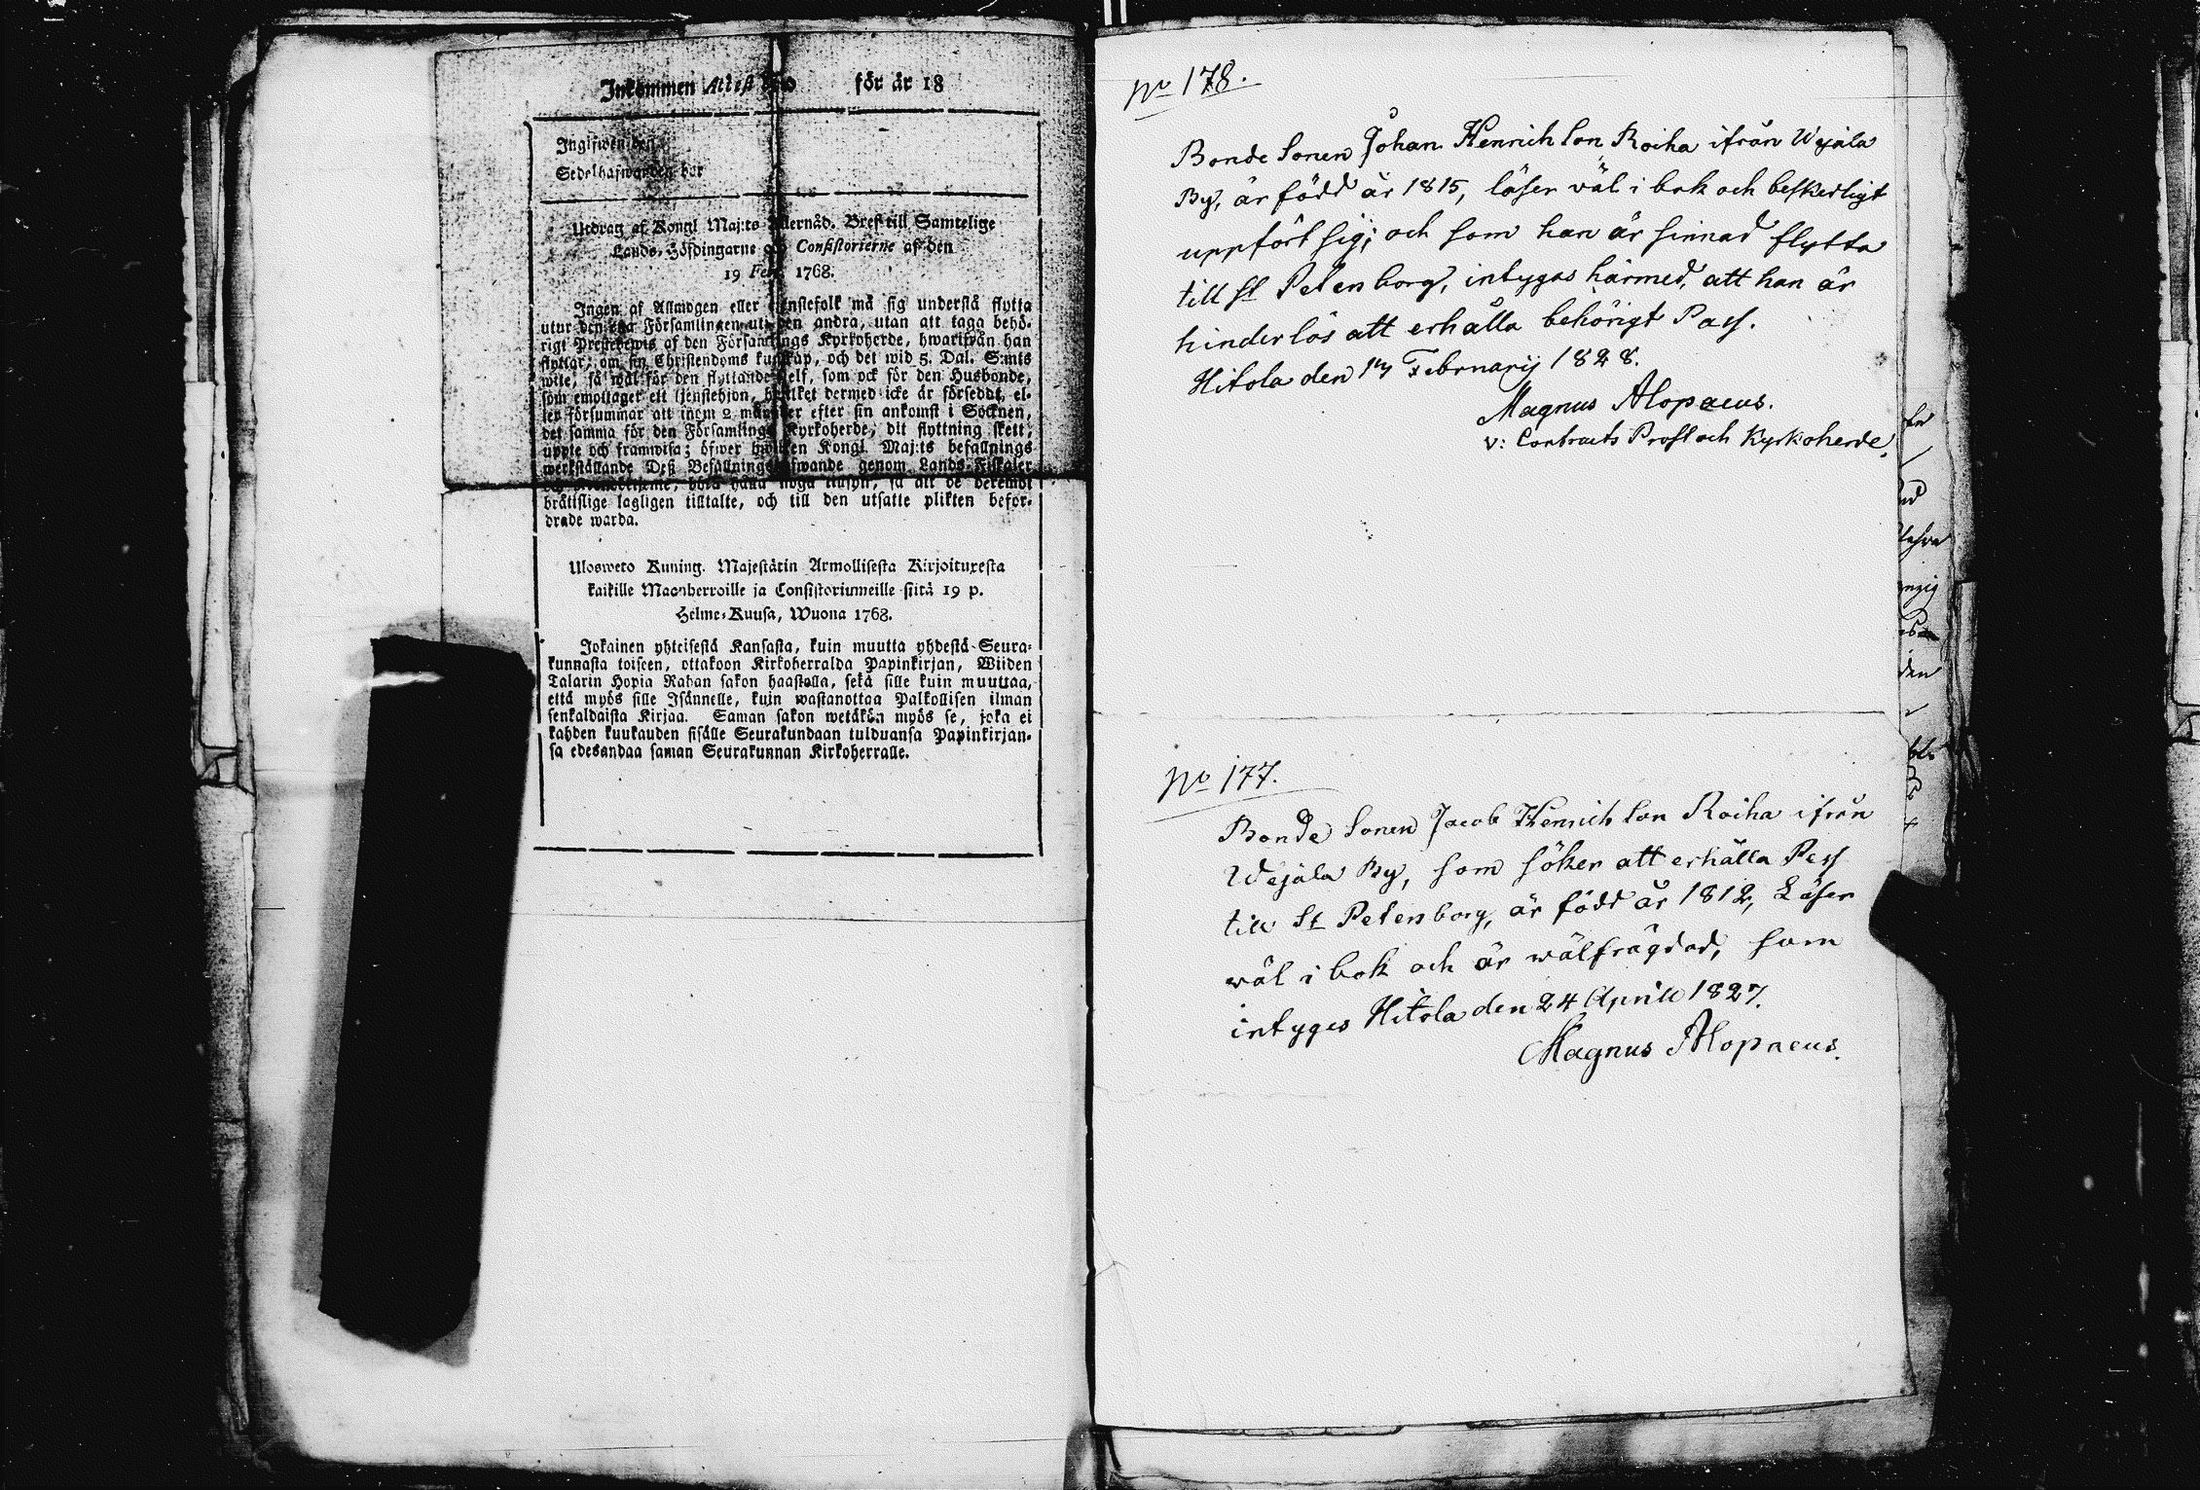 Inkommen Attest N:o för år 18
Inglifwen den
Sedelhafwanden bor
Utdrag af Kongl Maj:ts Allernåd. Bref till Samtelige
Lands-Höfdingarne och Consistorierne af den
19 Febr. 1768.
Ingen af Allmogen eller tjenstefolk må sig understå flytta
utur den ena Församlingen uti den andra, utan att taga behö-
rigt Prestebewis af den Församlings Kyrkoherde, hwarifrån han
flyttar, om sin Christendoms kunskap, och det wid 5. Dal. S:mts
wite, så wäl för den flyttande self, som ock för den Husbonde,
som emottager ett tjenstehjon, hwilket dermed icke är försedd, el-
ler försummar att inom 2 månader efter sin ankomst i Söcknen,
det samma för den Församlings Kyrkoherde, dit flyttning skett,
uppte och framwisa; öfwer hwilken Kongl Maj:ts befallnings
werkställande Deß Befallningshafwande genom Lands-Fiskaler
och håra hålla noga tillsyn, så att de deremot
brättslige lagligen tilltalte, och till den utsatte plikten befor-
drade warda.
Ulosweto Kuning. Majestätin Armollisesta Kirjoituxesta
kaikille Maanherroille ja Consistoriumeille siitä 19 p.
Helme-Kuusa, Wuona 1768.
Jokainen yhteisestä Kansasta, kuin muutta yhdestä Seura-
kunnasta toiseen, ottakoon Kirkoherralda Papinkirjan, Wiiden
Talarin Hopia Rahan sakon haastolla, sekä sille kuin muuttaa,
että myös sille Isännelle, kuin wastanottaa Palkollisen ilman
senkaldaista Kirjaa. Saman sakon wetäkön myös se, joka ei
kahden kuukauden sisälle Seurakundaan tulduansa Papinkirjan-
sa edesandaa saman Seurakunnan Kirkoherralle.
No 178.
Bonde Sonen Johan Henrich Son Roiha ifrån Wejala
By, är född år 1815, läser väl i bok och beskedligt
uppfört sig; och som han är sinnad flytta
till St Petersborg, intygas härmed, att han är
hinderlös att erhålla behörigt Pass.
Hitola den 17 Februarij 1828.
Magnus Alopaeus.
v: Contracts Prost och Kyrkoherde.
No 177.
Bonde Sonen Jacob Henrich Son Roiha ifrån
Wejala By, som söker att erhålla Pass
till St Petersborg, är född år 1812, Läser
wäl i bok och är wälfrägdad, som
intyges Hitola den 24 Aprill 1827.
Magnus Alopaeus.